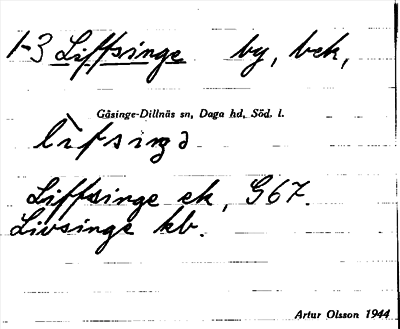 1-3 Liffsinge by, bck,
Gåsinge-Dillnäs sn, Daga hd, Söd. l.
lìfsiŋə
Liffsinge ek, G67.
Livsinge kb.
Artur Olsson 1944